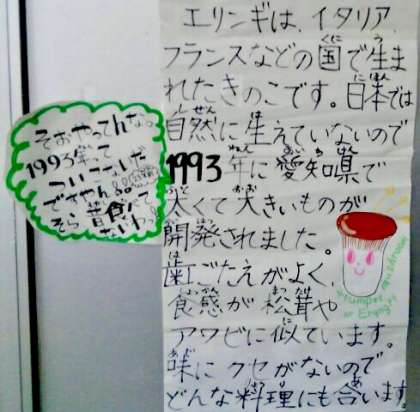 エリンギは、イタリア、
フランスなどの国で生ま
れたきのこです。日本では
自然に生えていないので
1993年に愛知県で
太くて大きいものが
開発されました。
歯ごたえがよく、
食感が松茸や
アワビに似ています。
味にクセがないので
どんな料理にも合います。
そおやってんなっ
1993年って
ついこないだ
でさやん。
そら昔食べて
ないわっ
trumpet
or Eryngii
mushroom